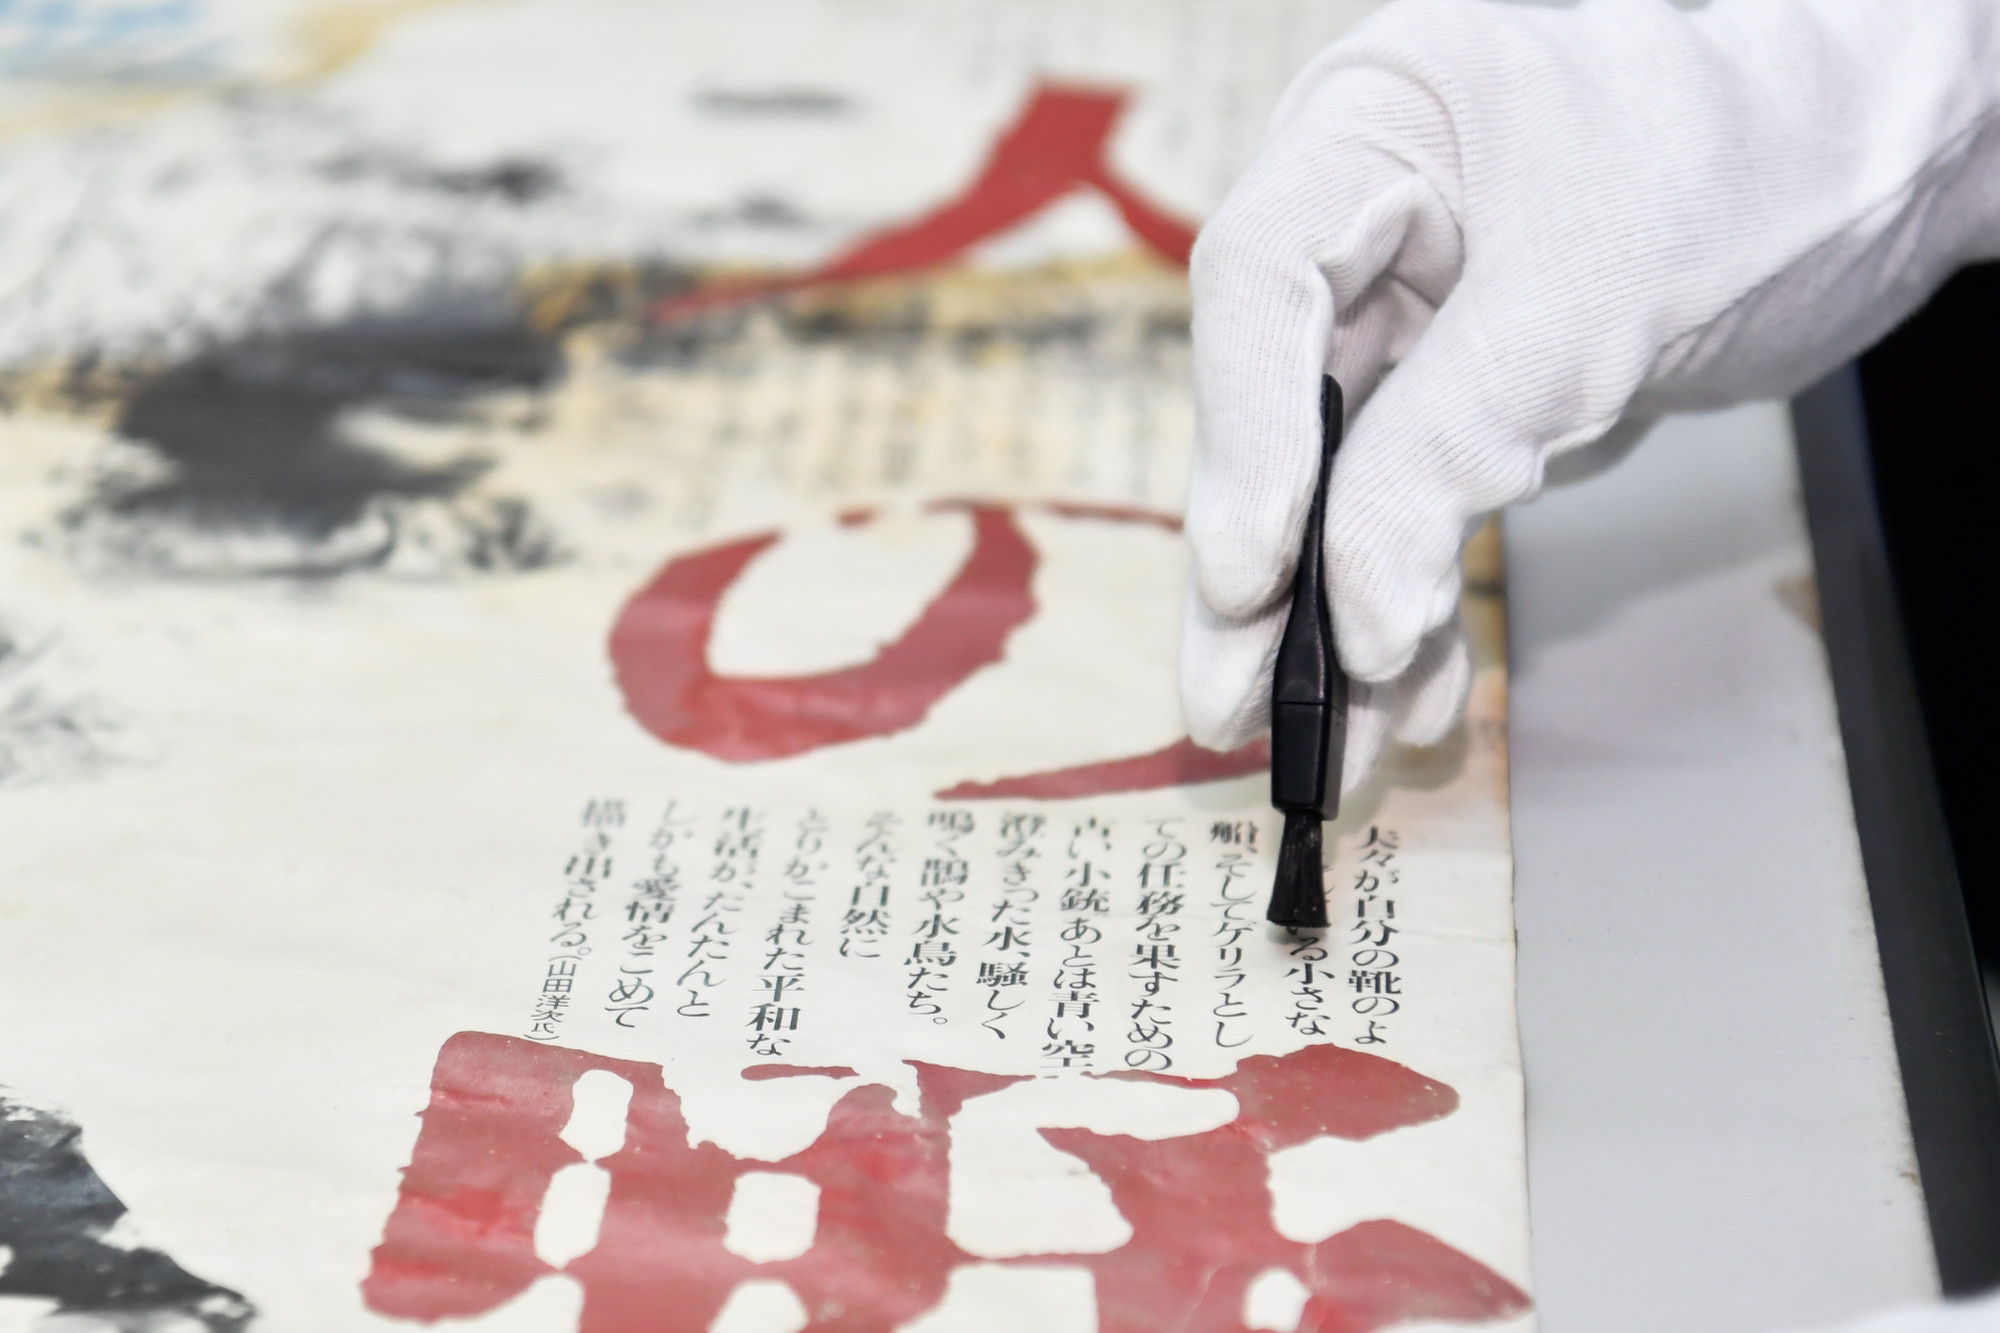 人の野
夫々が自分の靴のよ
る小さな
船、そしてゲリラとし
ての任務を果すための
古い小銃あとは青い空
澄みきった水、騒しく
鳴く鵲や水鳥たち。
そんな自然に
とりかこまれた平和な
生活が、たんたんと
しかも愛情をこめて
描き出される。(山田洋次氏)